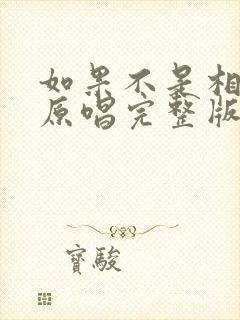 如果不是相
原唱完整版
寳駿